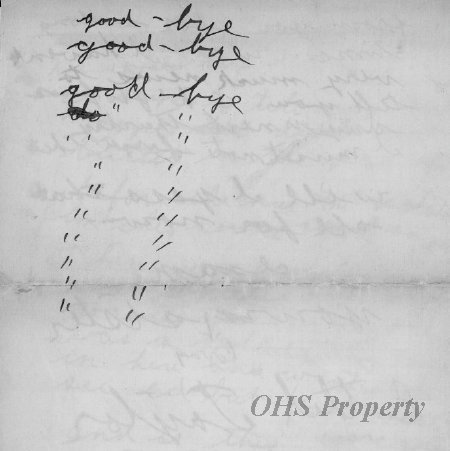 good-bye
good-bye
good-bye
do " "
" "
" "
" "
" "
" "
" "
" "
" "
" "
OHS Property